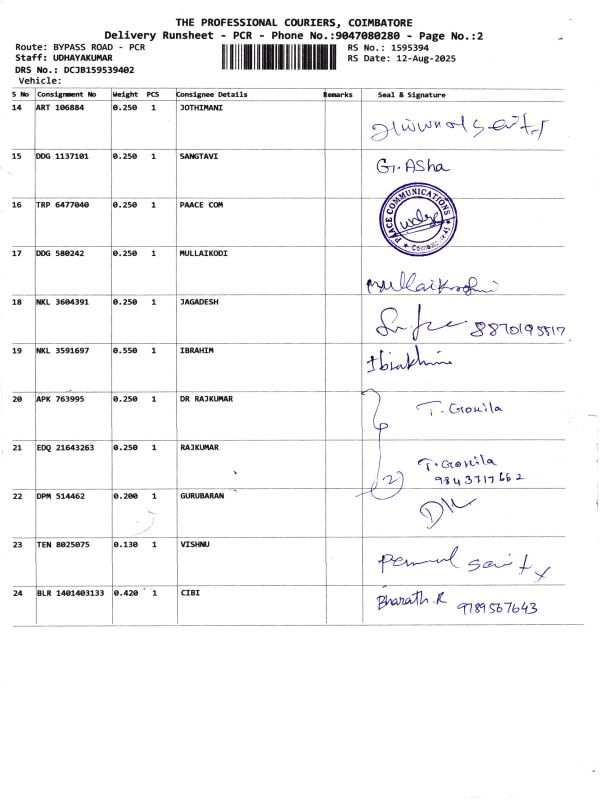 THE PROFESSIONAL COURIERS, COIMBATORE
Delivery Runsheet - PCR - Phone No.:9047080280 - Page No.:2
Route: BYPASS ROAD - PCR RS No.: 1595394
Staff: UDHAYAKUMAR RS Date: 12-Aug-2025
DRS No.: DCJB159539402
Vehicle:
S No Consignment No Weight PCS Consignee Details Remarks Seal & Signature
14 ART 106884 0.250 1 JOTHIMANI
15 DDG 1137101 0.250 1 SANGTAVI G.Asha
16 TRP 6477040 0.250 1 PAACE COM PAACE COMMUNICATIONS
17 DDG 580242 0.250 1 MULLAIKODI
18 NKL 3604391 0.250 1 JAGADESH
19 NKL 3591697 0.550 1 IBRAHIM
20 APK 763995 0.250 1 DR RAJKUMAR T. Gokila
21 EDQ 21643263 0.250 1 RAJKUMAR T. Gokila
9843717662
22 DPM 514462 0.200 1 GURUBARAN
23 TEN 8025075 0.130 1 VISHNU
24 BLR 1401403133 0.420 1 CIBI Bharath.R 9789567643